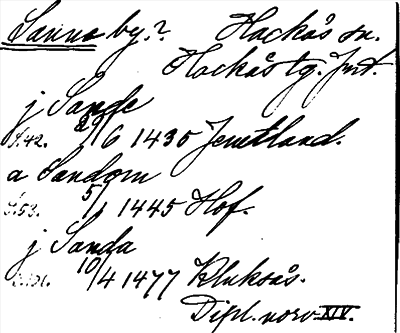 Sanna by.? Hackås sn.
Hackås tg. Jmt.
j Sande
S.42. 29/6 1430 Jemtland.
a Sandom
S.53. 5/1 1445 Hof.
j Sanda
10/4 1477 Kluksås.
Dipl. norv XIV.